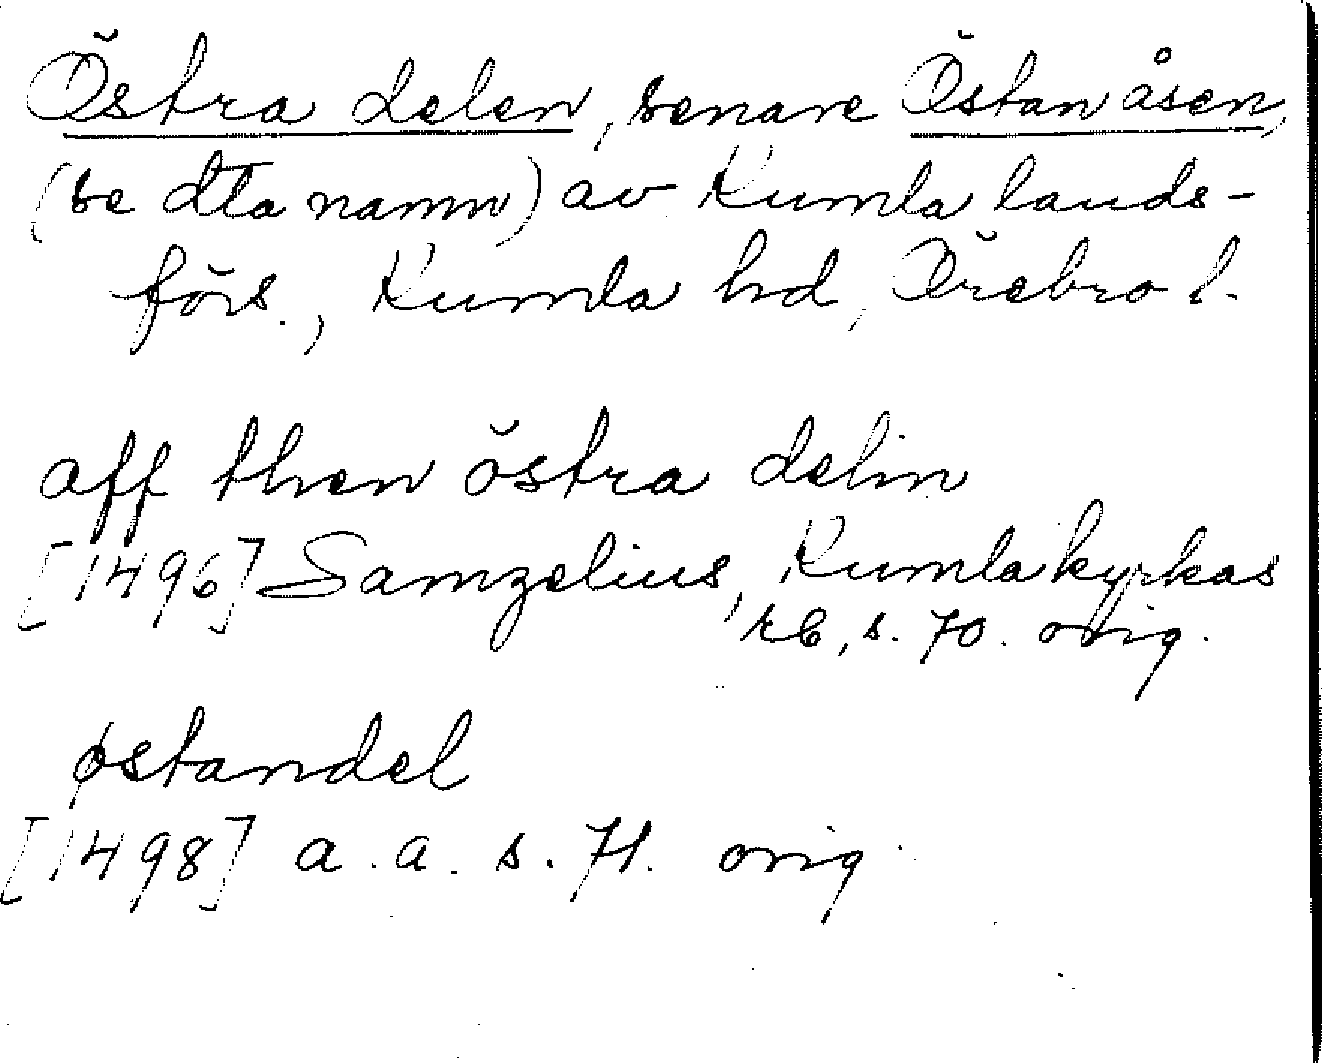 Östra delen, senare Östanåsen,
(se dta namn) av Kumla lands-
förs., Kumla hd, Örebro l.
aff then östra delin
[1496] Samzelius, Kumla kyrkas
rb, s. 70. orig.
østandel
[1498] a. a. s. 71. orig.